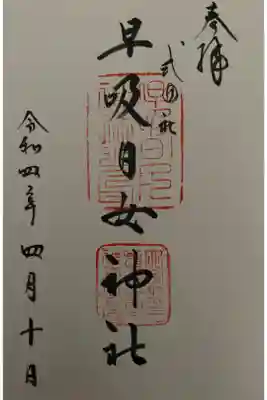 奉拝
式内社
早吸日女神社
令和四年四月十日